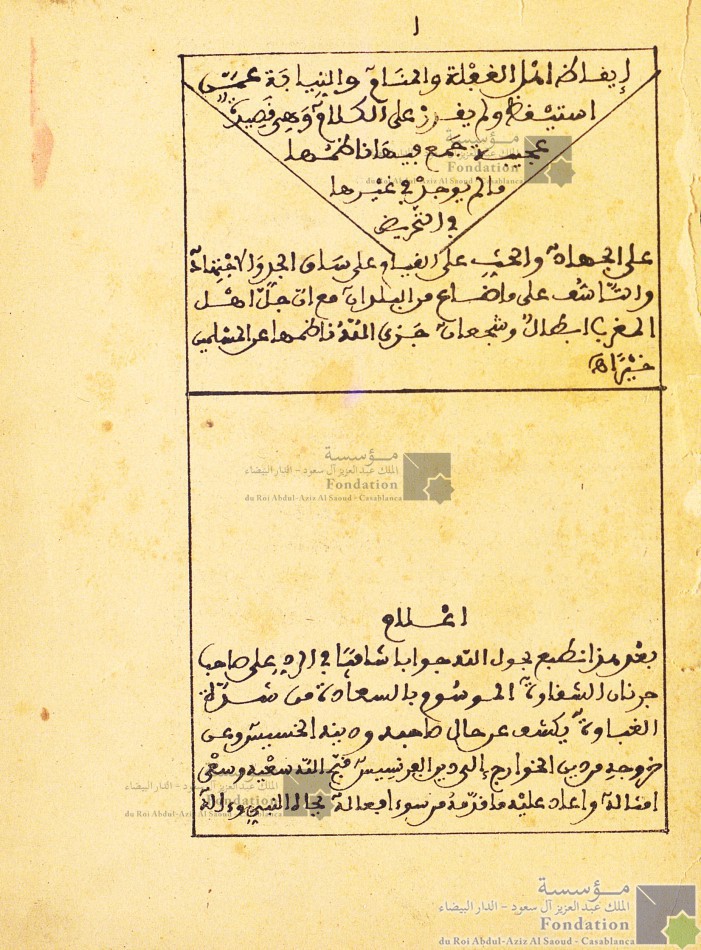 ١
إيقاظ أهل الغفلة والمنام والنيابة عمن
استيقظ ولم يقدر على الكلام وهي قصيدة
عجيبة جمع فيها ناظمها
مالم يوجد في غيرها
في التحريض
على الجهاد والحث على القيام على ساق الجد والاجتهاد
والتأسف على ماضاع من البلدان مع ان جل اهل
المغرب ابطال وشجعان جزى الله ناظمها عن المسلمين
خيرا ه
مؤسسة
الملك عبد العزيز آل سعود - الدار البيضاء
Fondation
du Roi Abdul-Aziz Al Saoud - Casablanca
اعلام
بعد هذا نطبع بحول الله جوابا شافيا في الرد على صاحب
جرنان الشقاوة الموسوم بالسعادة من شدة
الغباوة يكشف عن حال صاحبه ودينه الخسيس وعن
خروجه من دين الخوارج إلى دين الفرنسيس قبح الله سعيه وسعي
امثاله واعاد عليه ما قدمه من سوء افعاله بجاه النبي وءاله
مؤسسة
الملك عبد العزيز آل سعود - الدار البيضاء
Fondation
du Roi Abdul-Aziz Al Saoud - Casablanca